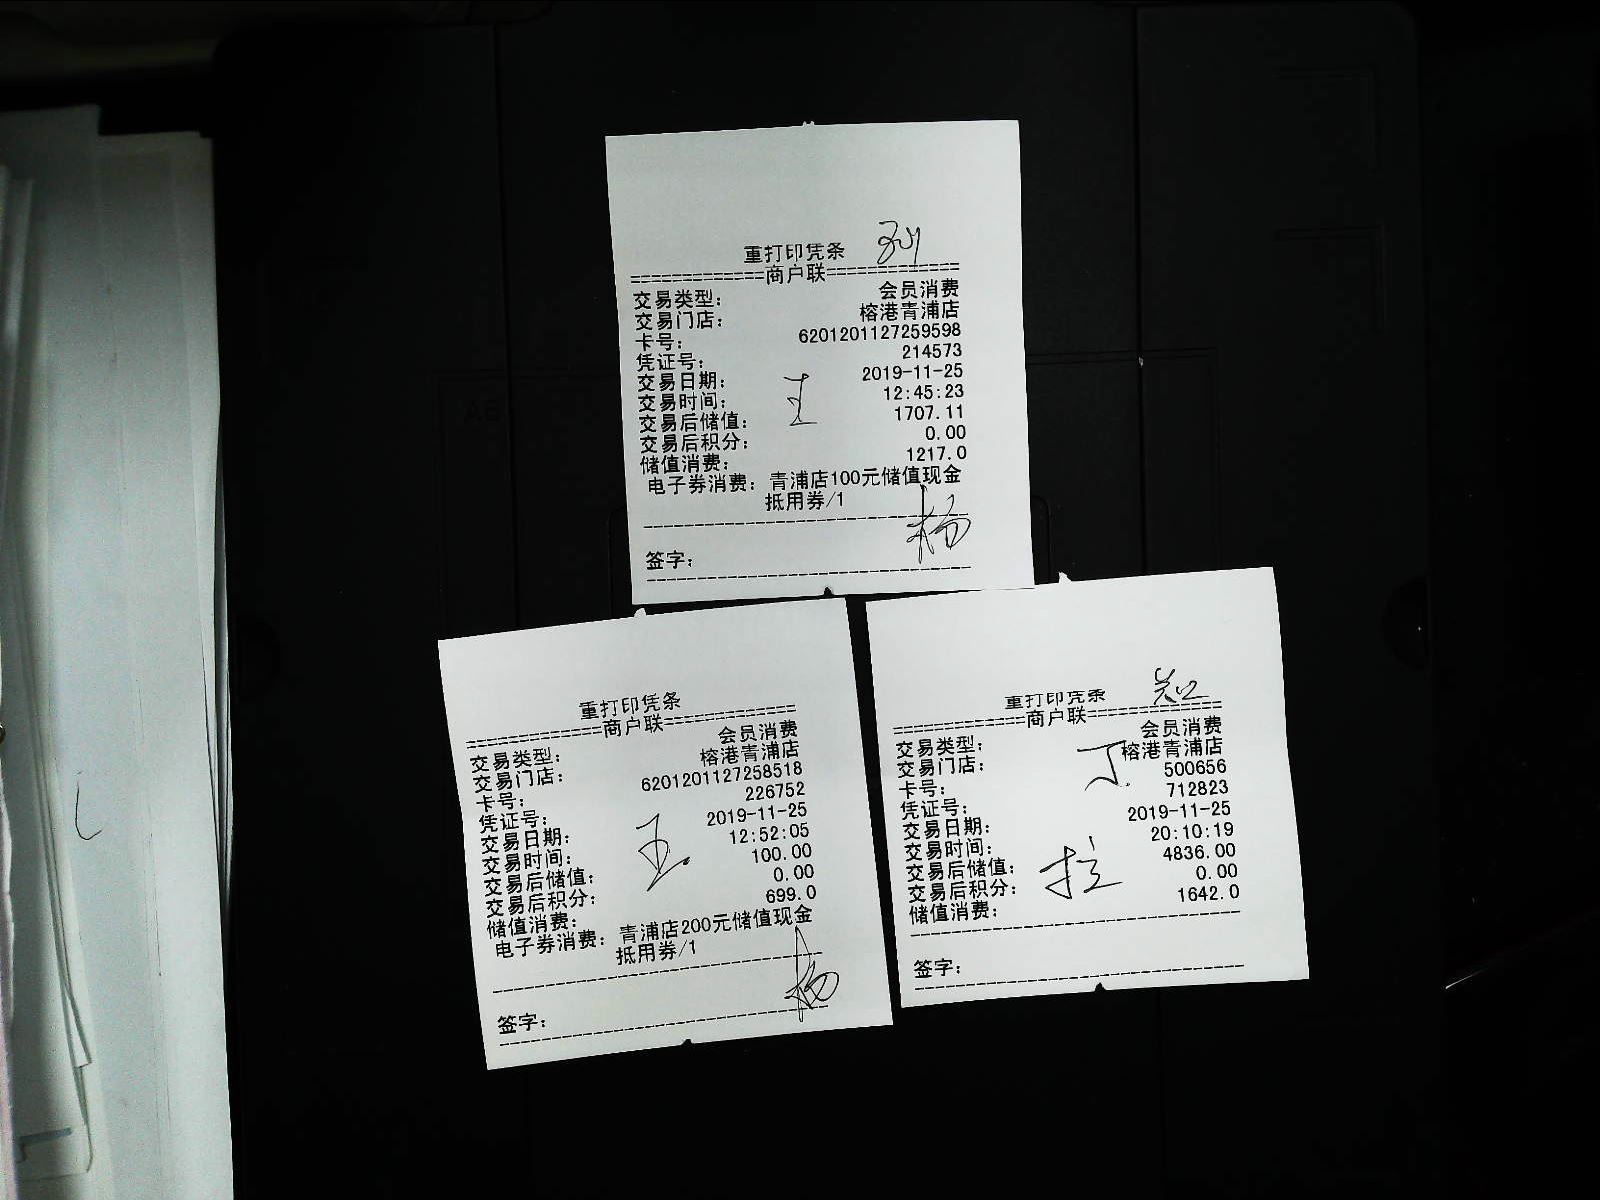 重打印凭条
=============商户联=============
交易类型： 会员消费
交易门店： 榕港青浦店
卡号： 6201201127259598
凭证号： 214573
交易日期： 2019-11-25
交易时间： 12:45:23
交易后储值： 1707.11
交易后积分： 0.00
储值消费： 1217.0
电子券消费：青浦店100元储值现金
抵用券/1
杨
签字：
重打印凭条
=============商户联=============
交易类型： 会员消费
交易门店： 榕港青浦店
卡号： 6201201127258518
凭证号： 226752
交易日期： 2019-11-25
交易时间： 12:52:05
交易后储值： 100.00
交易后积分： 0.00
储值消费： 699.0
电子券消费：青浦店200元储值现金
抵用券/1
杨
签字：
重打印凭条
=============商户联=============
交易类型： 会员消费
交易门店： 榕港青浦店
卡号： 500656
凭证号： 712823
交易日期： 2019-11-25
交易时间： 20:10:19
交易后储值： 4836.00
交易后积分： 0.00
储值消费： 1642.0
签字：